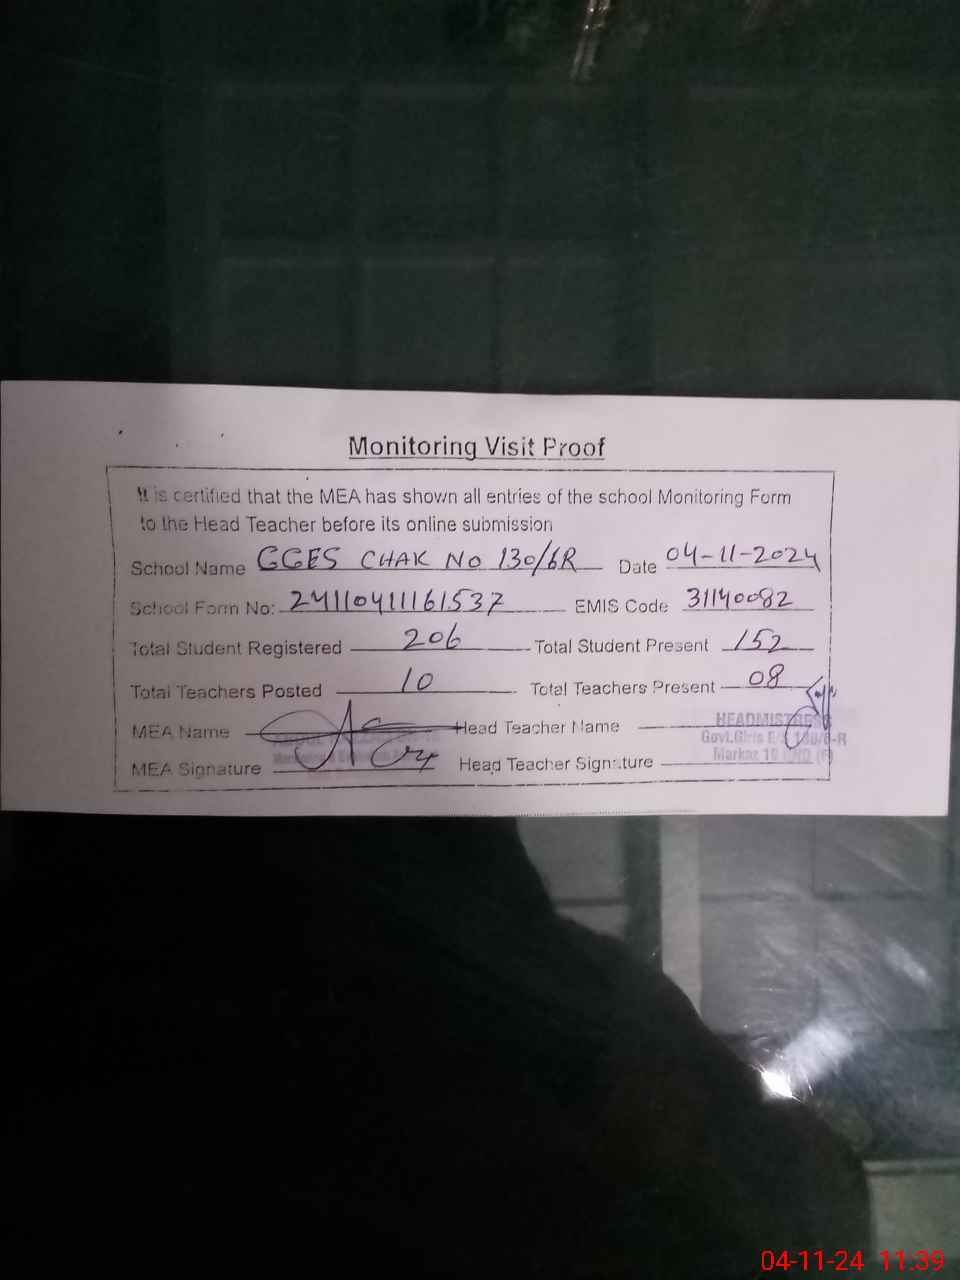 Monitoring Visit Proof
It is certified that the MEA has shown all entries of the school Monitoring Form
to the Head Teacher before its online submission
School Name GGES CHAK NO 130/6R Date 04-11-2024
School Form No: 24110411161537 EMIS Code 31140082
Total Student Registered 206 Total Student Present 152
Total Teachers Posted 10 Total Teachers Present 08
MEA Name Head Teacher Name HEADMISTRESS
Govt.Girls E/S 130/6-R
MEA Signature Head Teacher Signature Markaz
04-11-24 11:39